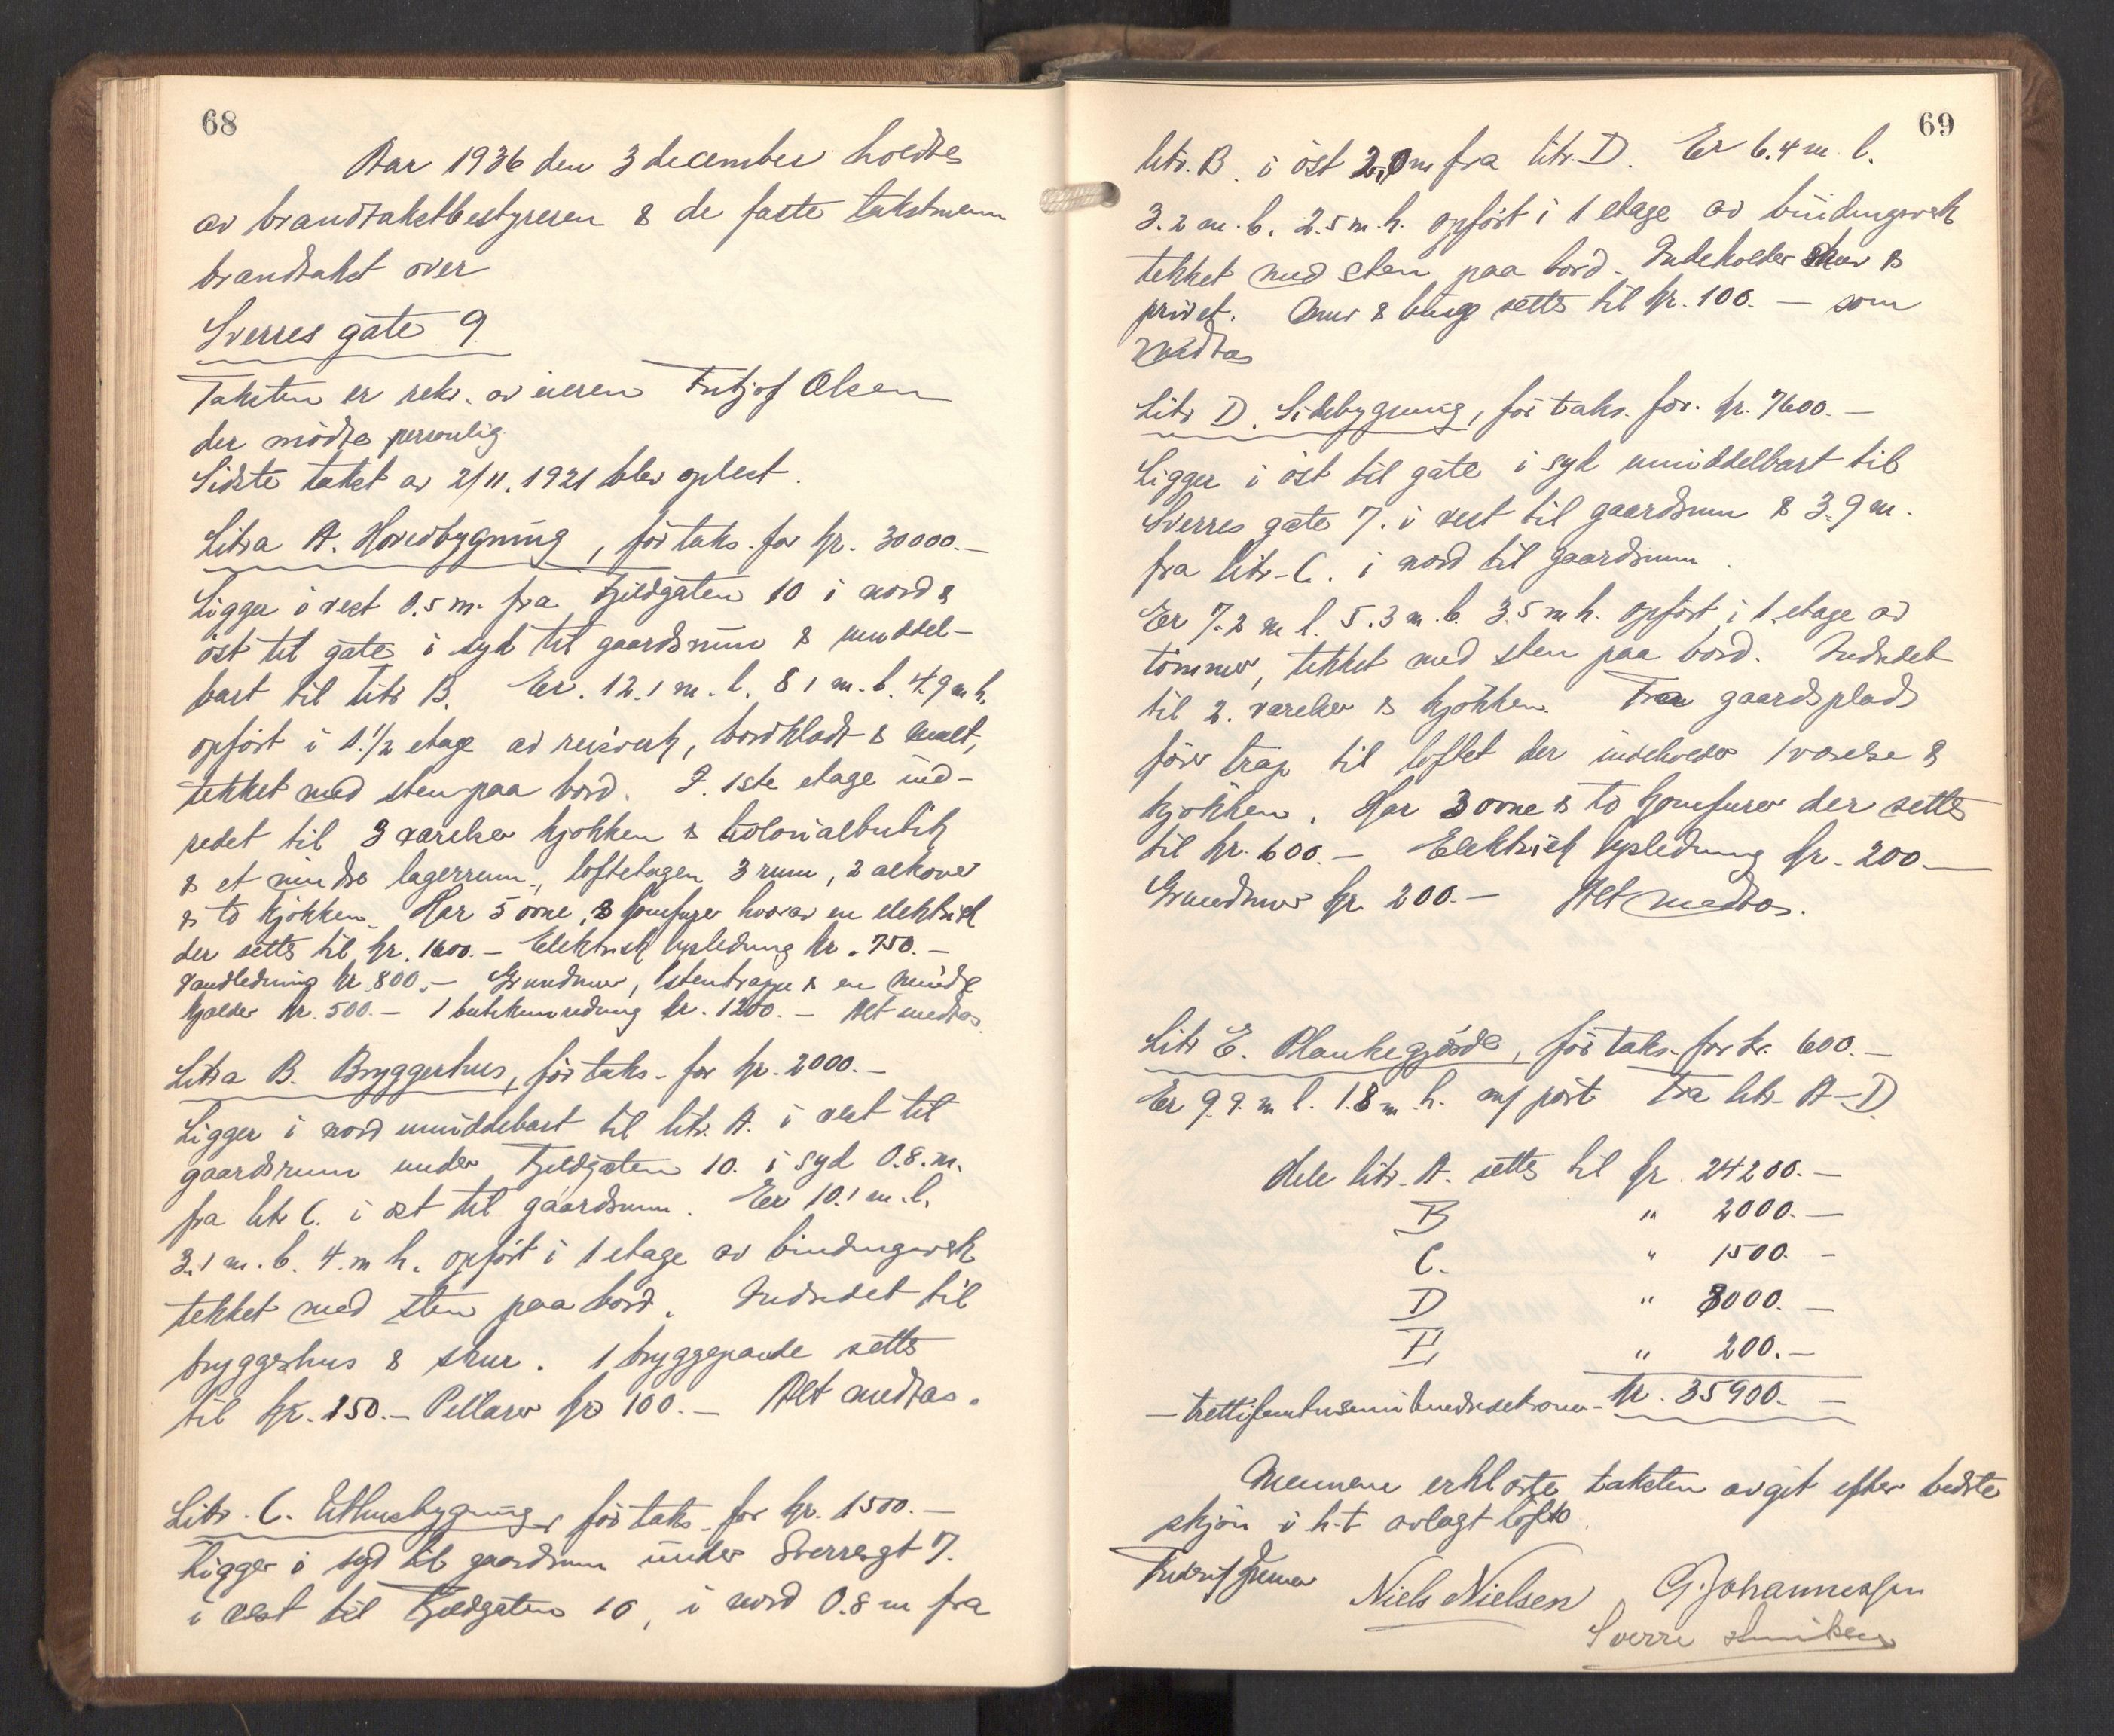 68
Aar 1936 den 3 december holdtes
av brandtakstbestyreren & de faste takstmenn
brandtakst over
Sverres gate 9.
Taksten er rekv. av eieren Fritjof Olsen
der mødte personlig.
Sidste takst av 2/11. 1921 blev oplest.
Litra A. Hovedbygning, før taks. for kr. 30000.—
Ligger i vest 0.5 m. fra Fjeldgaten 10 i nord &
øst til gate, i syd til gaardsrum & umiddel-
bart til litr B. Er. 12.1 m. l. 8 1 m. b. 4.9 m h.
opført i 1.1/2 etage av reisverk, bordklædt & malt,
tekket med sten paa bord. I. 1ste etage ind-
redet til 3 værelser kjøkken & kolonialbutik
& et mindre lagerrum, loftetagen 3 rum, 2 alkover
& to kjøkken. Har 5 ovne, 3 komfyrer hvorav en elektrisk
der settes til kr. 1600.— Elektrisk opledning kr. 750.—
Vandledning kr 800.— Grundmur, 1 stentrappe & en mindre
kjælder kr. 500.— 1 butikinredning kr. 1200.— Alt medtas.
Litra B. Bryggerhus, før taks. for kr. 2000.—
Ligger i nord umiddelbart til litr. A. i vest til
gaardsrum under Fjeldgaten 10. i syd 0.8. m.
fra litr C. i øst til gaardsrum. Er 10.1 m. l.
3.1 m. b. 4. m h. opført i 1 etage av bindingverk
tekket med sten paa bord. Indredet til
bryggerhus & skur. 1 bryggepande settes
til kr. 250.— Pillarer kr 100.— Alt medtas.
Litr. C. Uthusbygning, før taks. for kr. 1500.—
Ligger i syd til gaardsrum under Sverresgt 7.
i vest til Fjeldgaten 10, i nord 0.8 m fra
69
litr. B. i øst 2,0 m fra litr. D. Er 6.4 m. l.
3.2 m. b. 2.5 m. h. opført i 1 etage av bindingverk
tekket med sten paa bord. Indeholder skur &
privet. Mur & binge settes til kr. 100.— som
medtas
Litr D. Sidebygning, før taks. for. kr. 7600.—
Ligger i øst til gate i syd umiddelbart til
Sverres gate 7. i vest til gaardsrum & 3.9 m.
fra litr. C. i nord til gaardsrum.
Er 7.2 m l. 5.3 m. b. 3.5 m h. opført i 1. etage av
tømmer, tekket med sten paa bord. Indredet
til 2. værelser & kjøkken. Fra gaardsplads
fører trap til loftet der indeholder 1 værelse &
kjøkken. Har 3 ovne & to komfurer der settes
til kr. 600.— Elektrisk opledning kr. 200.—
Grundmur kr 200.— Alt medtas.
Litr E. Plankegjærde, før taks. for kr. 600.—
Er 9.9. m l. 1.8 m. h. m/ port fra litr. A—D.
Hele litr. A. settes til kr. 24200.—
B " 2000.—
C. " 1500.—
D " 8000.—
E " 200.—
— trettifemtusennihundredekroner — kr. 35900.—
Mennene erklærte taksten avgit efter bedste
skjøn i h.t. avlagt løfte.
Niels Nielsen G. Johannessen
Sverre